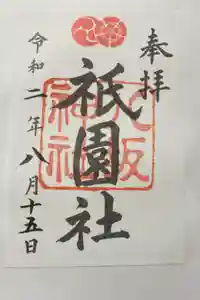 奉拝
八坂
神社
祇園社
令和二年八月十五日